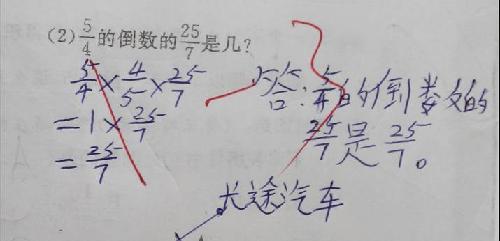 (2) 5/4 的倒数的 25/7 是几?
5/4 × 4/5 × 25/7
= 1 × 25/7
= 25/7
答:5/4的倒数的
25/7是25/7。
长途汽车